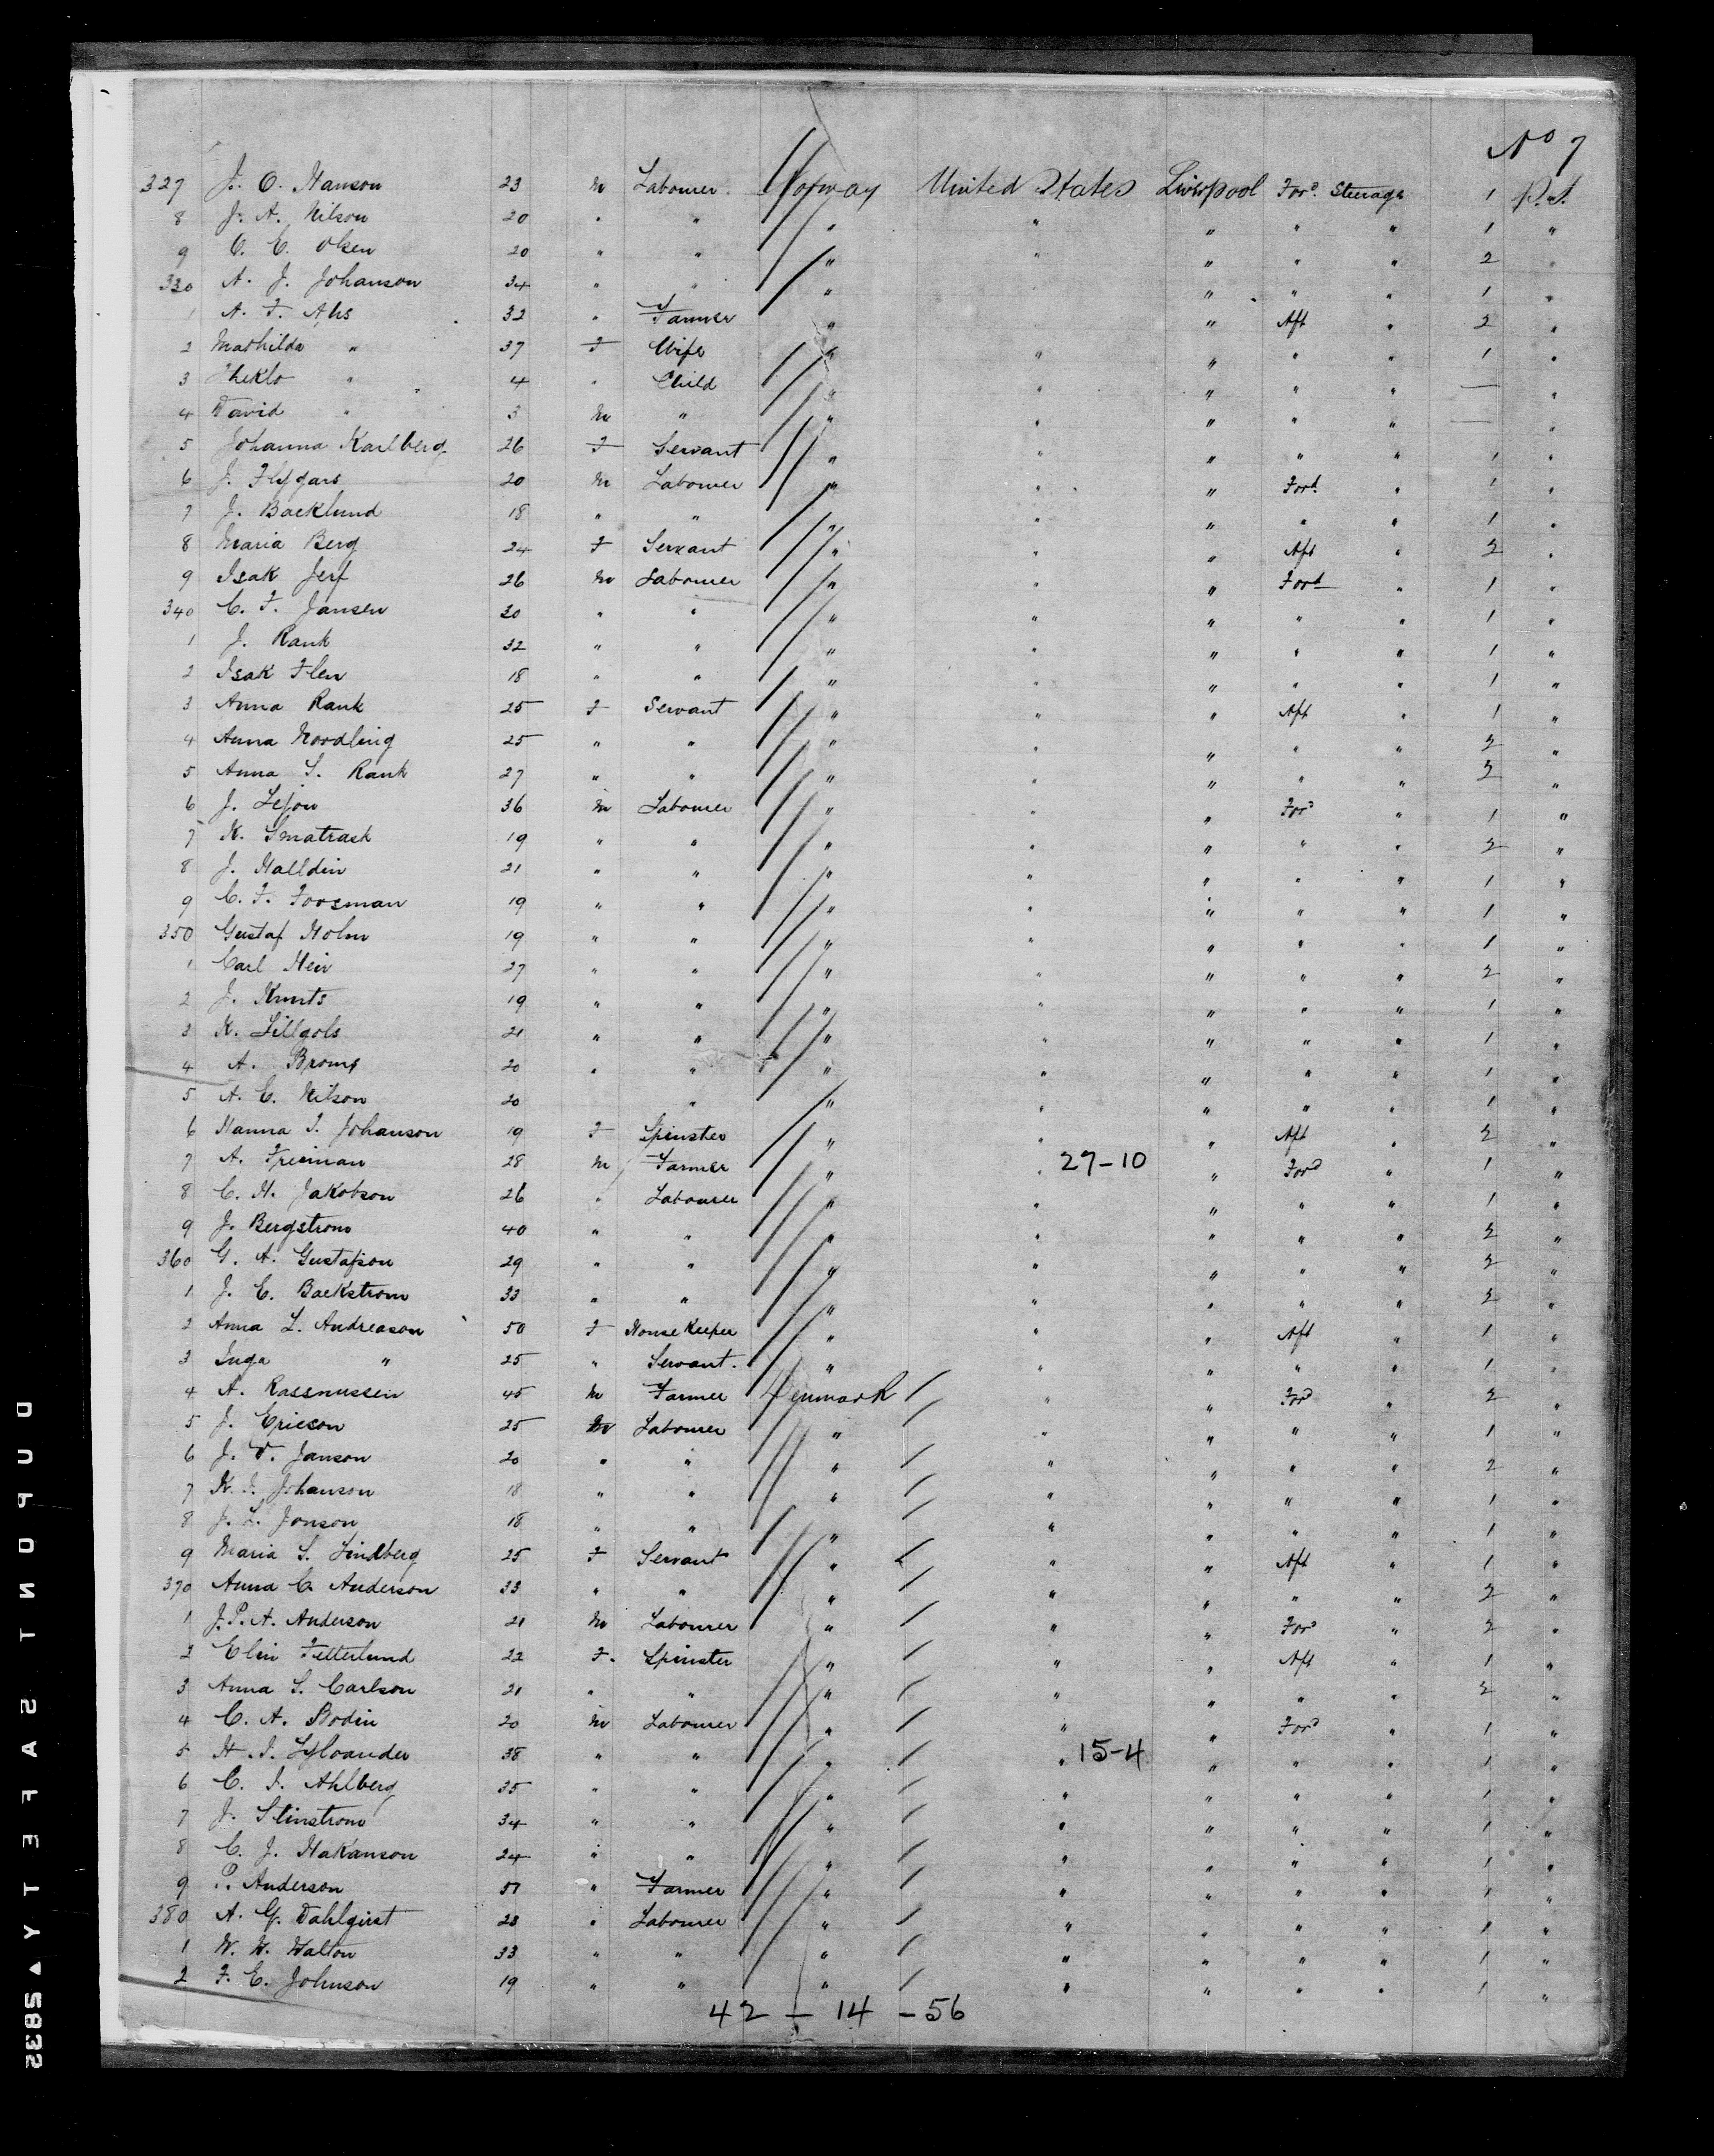 No 7
327 J. O. Hanson 23 m Labourer Norway United States Liverpool For'd Steerage 1 P.S.
8 J. A. Nilson 20 " " " " " " " 1 "
9 C. E. Olsen 20 " " " " " " " 2 "
330 A. J. Johanson 34 " " " " " " 1 "
1 A. F. Ahs 32 " Farmer " " Aft " 2 "
2 Mathilda " 37 F Wife " " " " " 1 "
3 Theklo " 4 " Child " " " " " — "
4 David " 3 m " " " " " " — "
5 Johanna Karlberg 26 F Servant " " " " " 1 "
6 J. Flygars 20 m Labourer " " " Ford " 1 "
7 J. Backlund 18 " " " " " " " 1 "
8 Maria Berg 24 F Servant " " " Aft " 2 "
9 Isak Jerf 26 m Labourer " " " Ford " 1 "
340 C. F. Jansen 30 " " " " " " " 1 "
1 J. Rank 32 " " " " " " " 1 "
2 Isak Flen 18 " " " " " " " 1 "
3 Anna Rank 25 F Servant " " " Aft " 1 "
4 Anna Noodling 25 " " " " " " " 2 "
5 Anna S. Rank 27 " " " " " " " 2 "
6 J. Lejon 36 m Labourer " " " For'd " 1 "
7 K. Smatrask 19 " " " " " " " 2 "
8 J. Halldin 21 " " " " " " " 1 "
9 C. F. Forsman 19 " " " " " " " 1 "
350 Gustaf Holm 19 " " " " " " " 1 "
1 Carl Heir 27 " " " " " " " 2 "
2 J. Knuts 19 " " " " " " " 1 "
3 K. Lillgols 21 " " " " " " " 1 "
4 A. Broms 20 " " " " " " " 1 "
5 A. E. Nilson 20 " " " " " " 1 "
6 Hanna S. Johanson 19 F Spinster " " " Aft " 2 "
7 A. Freiman 28 m Farmer " " 27-10 " For'd " 1 "
8 C. H. Jakobson 26 " Labourer " " " " " 1 "
9 J. Bergstrom 40 " " " " " " " 2 "
360 G. A. Gustafson 29 " " " " " " " 2 "
1 J. E. Backstrom 33 " " " " " " " 2 "
2 Anna L. Andreason 50 F House Keeper " " " Aft " 1 "
3 Inga " 25 " Servant. " " " " " 1 "
4 A. Rassmussen 45 m Farmer Denmark " " For'd " 2 "
5 J. Ericson 25 m Labourer " " " " " 1 "
6 J. V. Janson 20 " " " " " " " 2 "
7 K. J. Johanson 18 " " " " " " " 1 "
8 J. L. Jonson 18 " " " " " " " 1 "
9 Maria S. Lindberg 25 F Servant " " " Aft " 1 "
370 Anna C. Anderson 33 " " " " " " " 2 "
1 J. P. A. Anderson 21 m Labourer " " " For'd " 2 "
2 Elin Fetterlund 22 F. Spinster " " " Aft " 1 "
3 Anna S. Carlson 21 " " " " " " " 2 "
4 C. A. Bodin 20 m Labourer " " " For'd " 1 "
5 H. J. Lyloander 38 " " " " 15-4 " " " 1 "
6 C. J. Ahlberg 35 " " " " " " " 1 "
7 J. Stinstrom 34 " " " " " " " 1 "
8 C. J. Hakanson 24 " " " " " " " 1 "
9 P. Anderson 51 " Farmer " " " " " 1 "
380 A. G. Dahlqirst 23 " Labourer " " " " " 1 "
1 W. W. Walton 33 " " " " " " " 1 "
2 F. E. Johnson 19 " " " " " " " 1 "
42 - 14 - 56
DUPONT SAFETY 5832